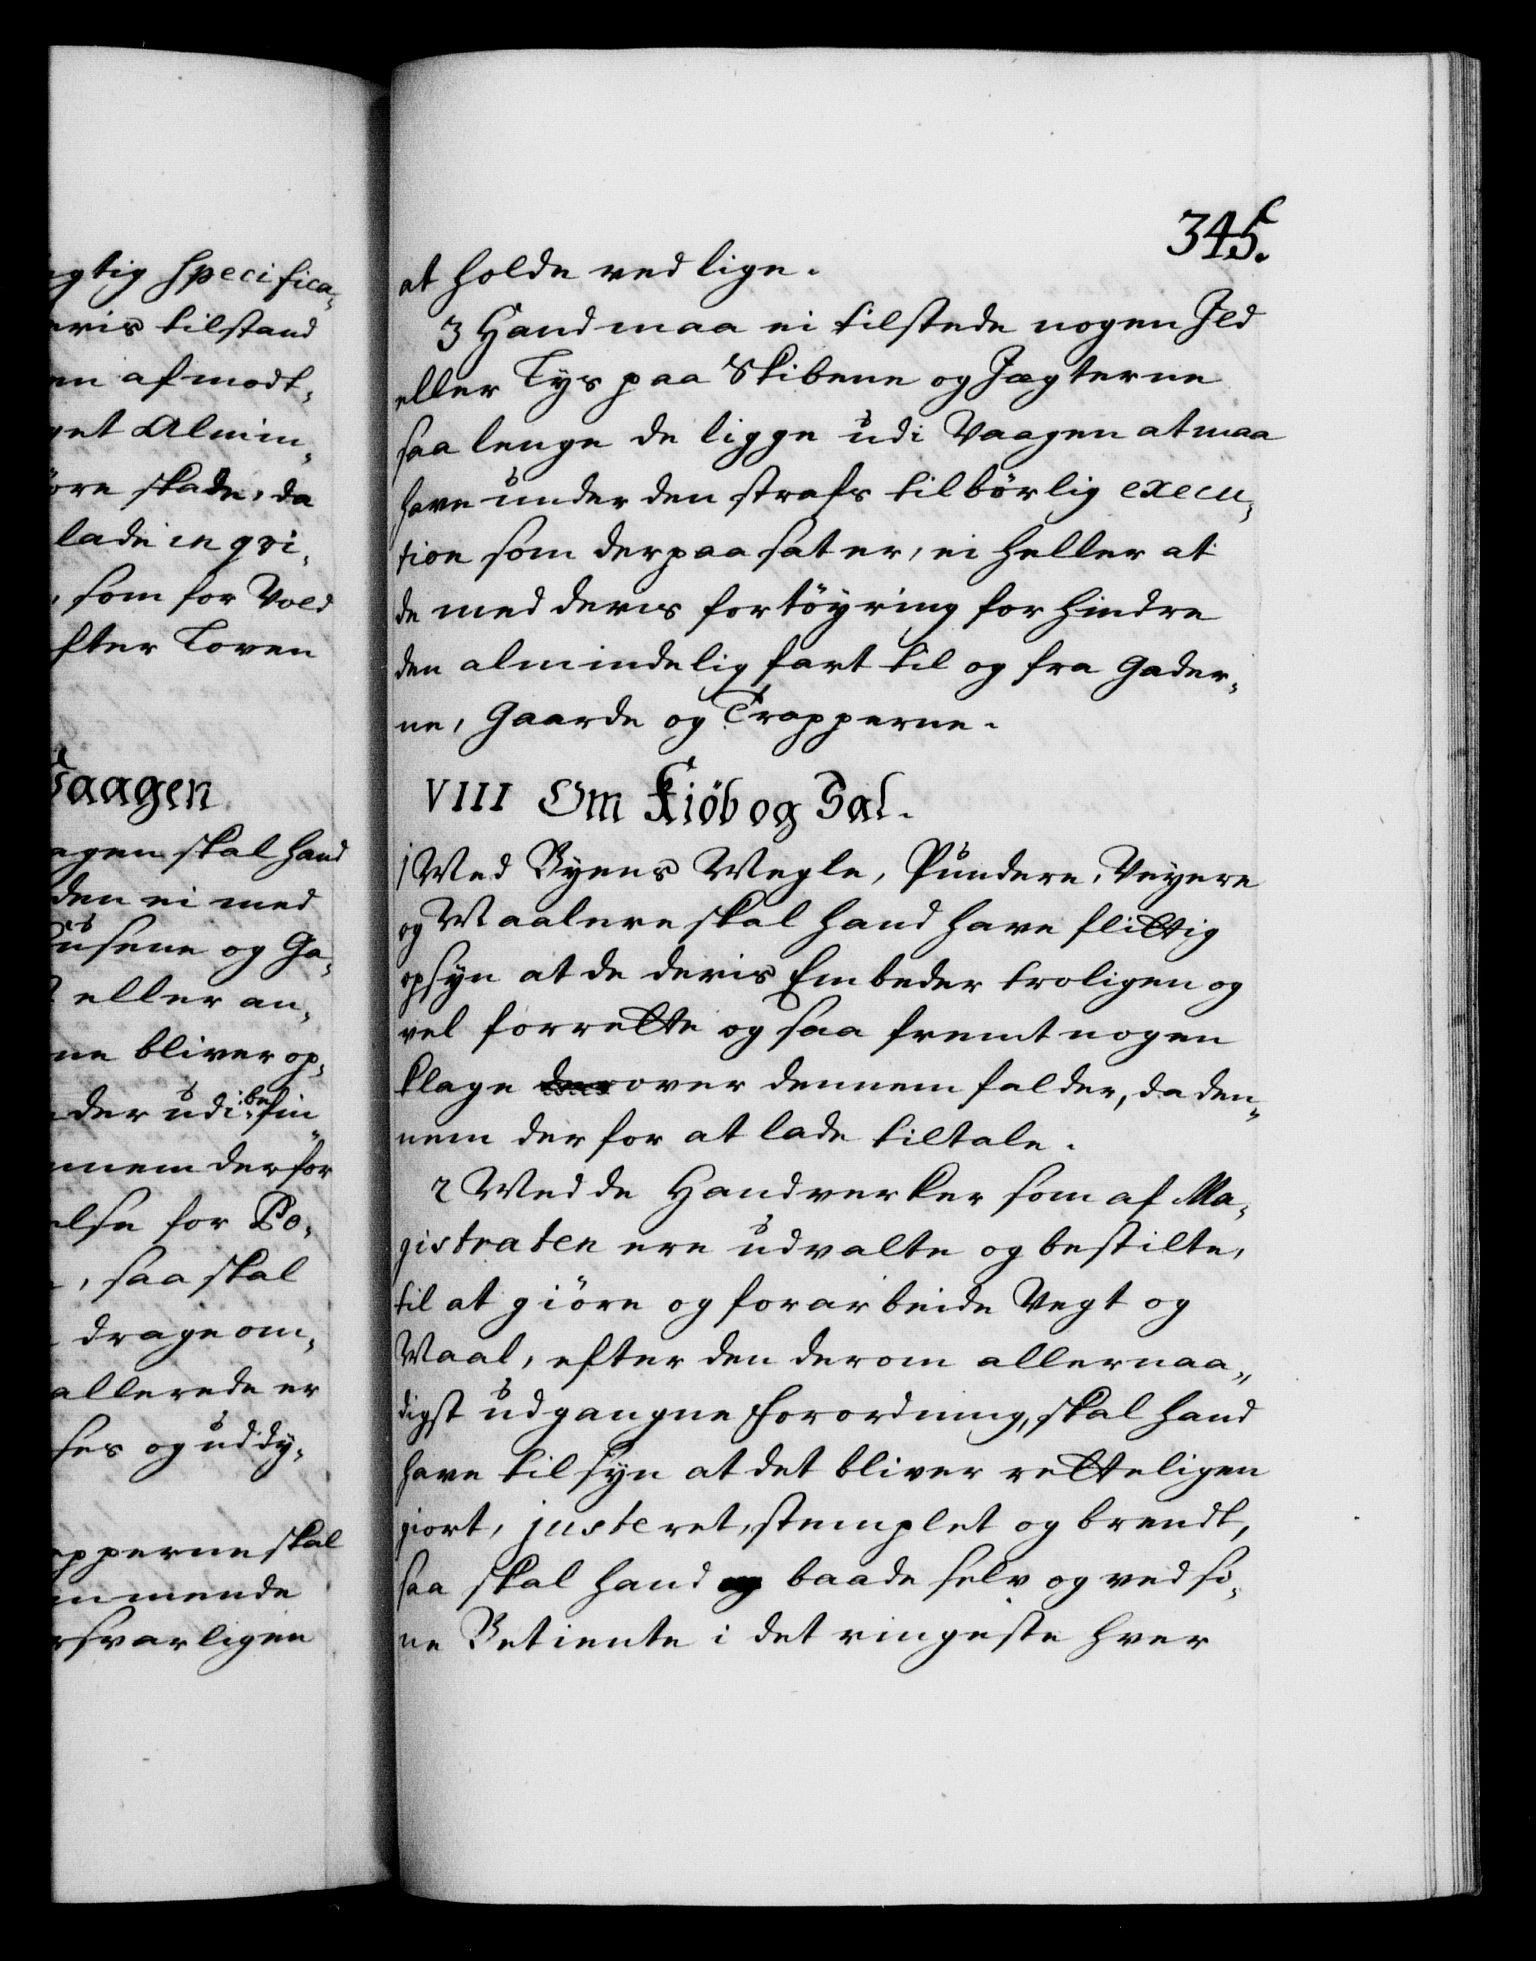 agtig specifica-
eris tilstand
en afmodt,
get Almin,
öre skade, da
lade in qvi,
, som for Vold
fter Loven
Vaagen
agen skal hand
den ei med
usene og Ga,
eller an,
ne bliver op,
der udi befin
nnem derfor
else for Po,
, saa skal
drage om,
allerede er
ses og uddy,
apperne skal
mmende
rsvarligen
345.
at holde ved lige.
3 Hand maa ei tilstede nogen Ild
eller Lys paa Skibene og Jægterne
saa lenge de ligge udi Vaagen at maa
have under den strafs tilbörlig execu,
tion som derpaa sat er, ei heller at
de med deris fortöyring forhindre
den almindelig fart til og fra Gader,
ne, Gaarde og Trapperne.
VIII Om Kiöb og Sal.
1 Med Byens Megle, Pundere, Veyere
og Maalere skal hand have flittig
opsyn at de deris Embeder troligen og
vel forrette og saa fremt nogen
klage der over dennem falder, da den,
nem derfor at lade tiltale.
2 Med de Handverker som af Ma,
gistraten ere udvalte og bestilte,
til at giöre og forarbeide Vegt og
Maal, efter den derom allernaa,
digst udgangne forordning, skal hand
have tilsyn at det bliver retteligen
giort, justeret, stemplet og brendt,
saa skal hand og baade selv og ved si,
ne Betiente i det ringeste hver